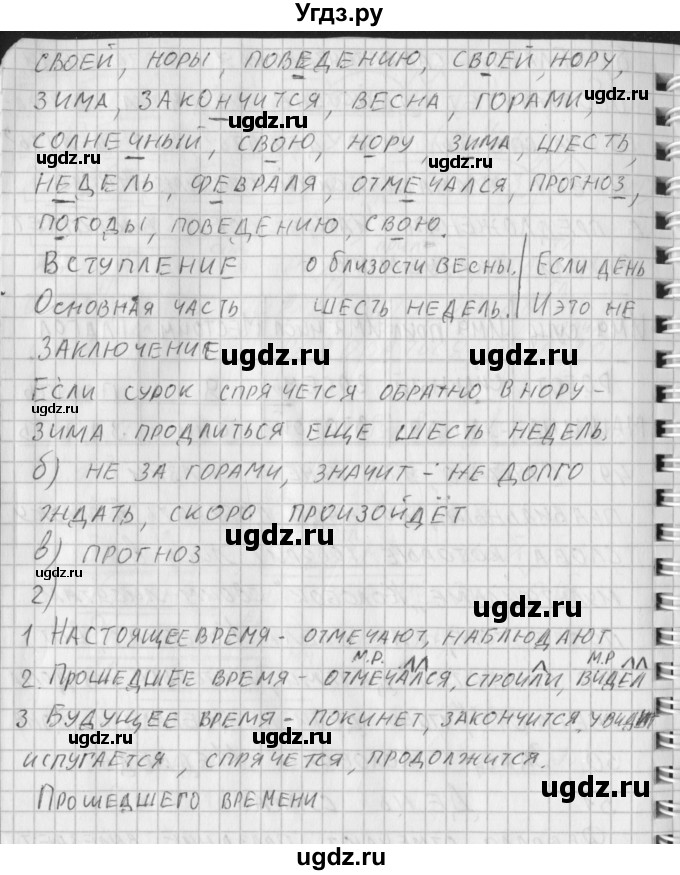 Угдз.ру
СВОЕЙ, НОРЫ, ПОВЕДЕНИЮ, СВОЕЙ, НОРУ,
ЗИМА, ЗАКОНЧИТСЯ, ВЕСНА, ГОРАМИ,
ugdz.ru
СОЛНЕЧНЫЙ, СВОЮ, НОРУ, ЗИМА, ШЕСТЬ,
ugdz.ru ugdz.ru
НЕДЕЛЬ, ФЕВРАЛЯ, ОТМЕЧАЛСЯ, ПРОГНОЗ,
ПОГОДЫ, ПОВЕДЕНИЮ, СВОЮ.
ВСТУПЛЕНИЕ О БЛИЗОСТИ ВЕСНЫ. | ЕСЛИ ДЕНЬ
ОСНОВНАЯ ЧАСТЬ ШЕСТЬ НЕДЕЛЬ. | И ЭТО НЕ
ЗАКЛЮЧЕНИЕ
ugdz.ru ugdz.ru
ЕСЛИ СУРОК СПРЯЧЕТСЯ ОБРАТНО В НОРУ -
ugdz.ru
ЗИМА ПРОДЛИТЬСЯ ЕЩЕ ШЕСТЬ НЕДЕЛЬ.
б) НЕ ЗА ГОРАМИ, ЗНАЧИТ - НЕ ДОЛГО
ЖДАТЬ, СКОРО ПРОИЗОЙДЁТ
ugdz.ru
в) ПРОГНОЗ
ugdz.ru
г)
ugdz.ru
1 НАСТОЯЩЕЕ ВРЕМЯ - ОТМЕЧАЮТ, НАБЛЮДАЮТ
М.Р. М.Р.
2. ПРОШЕДШЕЕ ВРЕМЯ - ОТМЕЧАЛСЯ, СТРОИЛИ, ВИДЕЛ
3 БУДУЩЕЕ ВРЕМЯ - ПОКИНЕТ, ЗАКОНЧИТСЯ, УВИДИТ
ugdz.ru ugdz.ru
ИСПУГАЕТСЯ, СПРЯЧЕТСЯ, ПРОДОЛЖИТСЯ.
ugdz.ru
ПРОШЕДШЕГО ВРЕМЕНИ
ugdz.ru